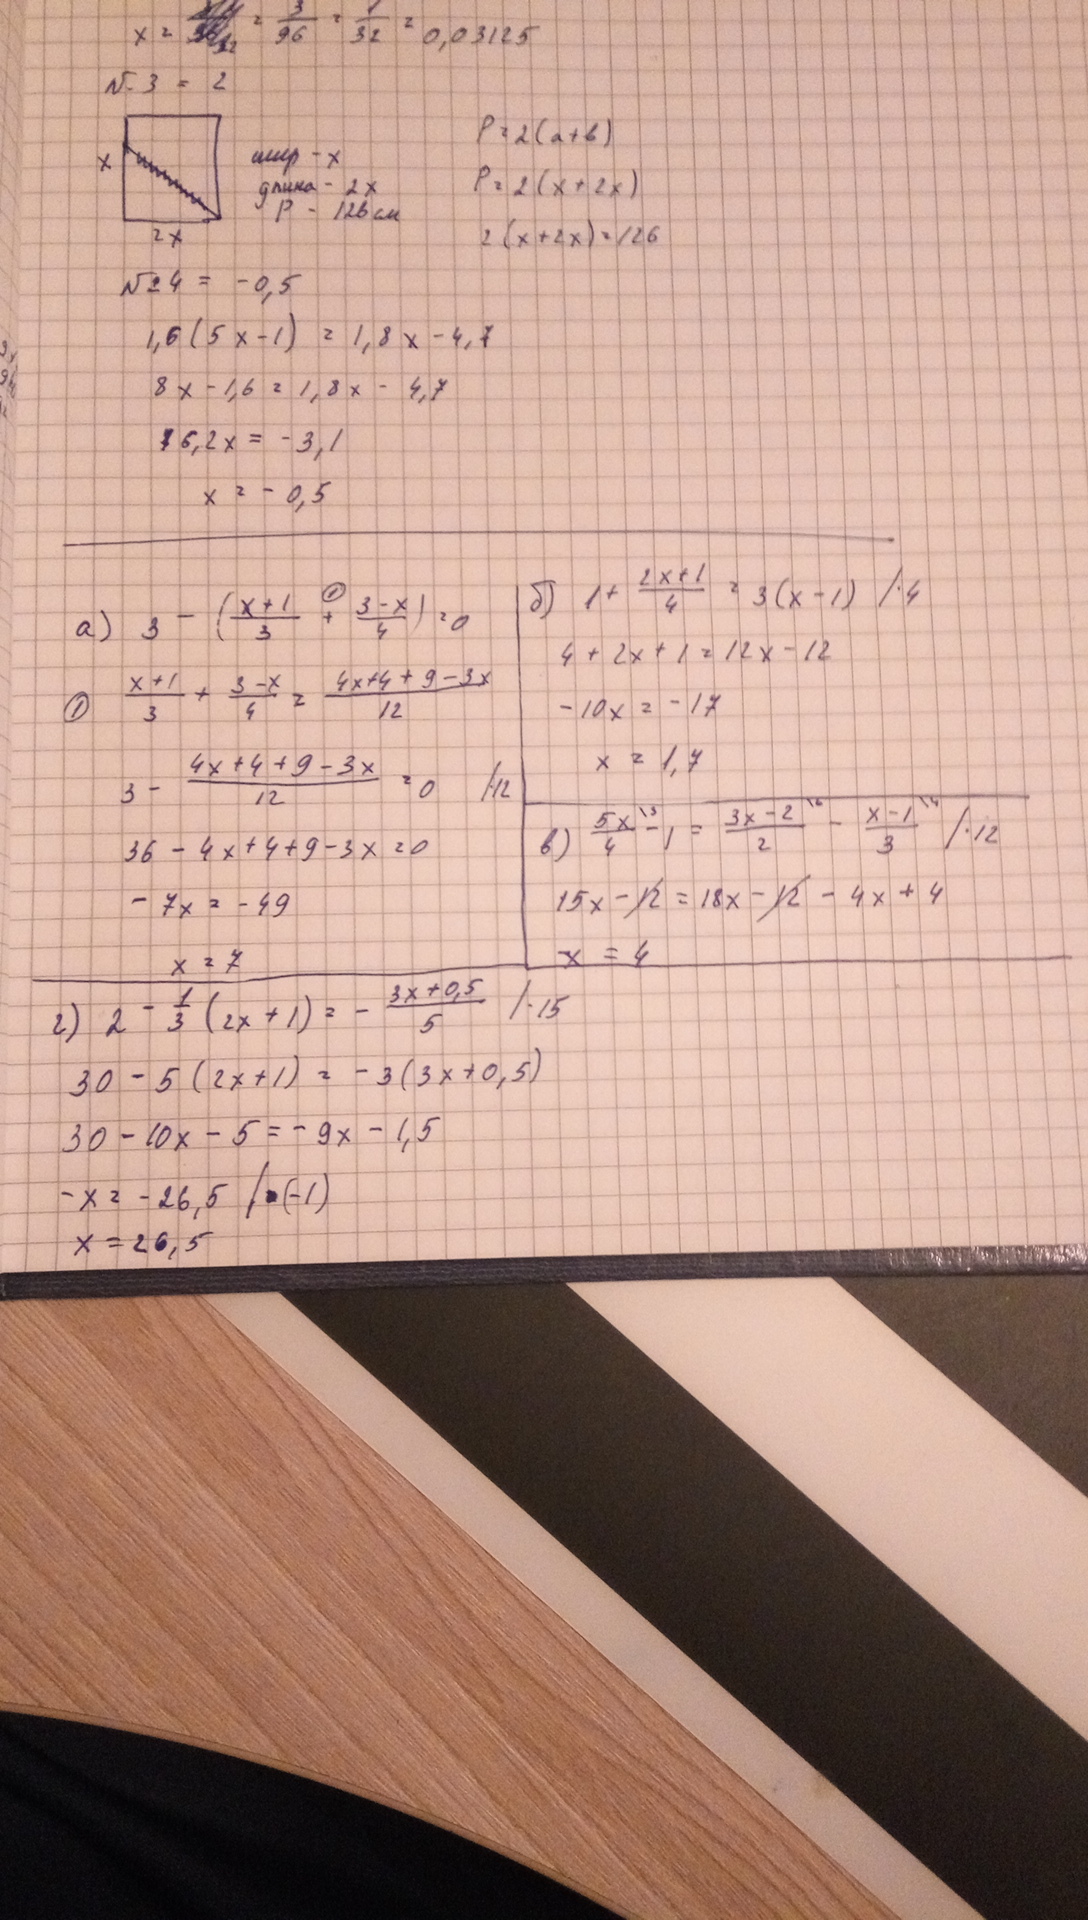 x = 3/96 = 1/32 = 0,03125
№3 = 2
x
2x
шир - x
длина - 2x
P - 126 см
P = 2(a+b)
P = 2(x+2x)
2(x+2x) = 126
№4 = -0,5
1,6(5x-1) = 1,8x - 4,7
8x - 1,6 = 1,8x - 4,7
6,2x = -3,1
x = -0,5
а) 3 - (x+1/3 +① 3-x/4) = 0
① x+1/3 + 3-x/4 = 4x+4+9-3x/12
3 - 4x+4+9-3x/12 = 0 /·12
36 - 4x+4+9-3x = 0
-7x = -49
x = 7
б) 1 + 2x+1/4 = 3(x-1) /·4
4 + 2x + 1 = 12x - 12
-10x = -17
x = 1,7
в) 5x/4 \3 - 1 = 3x-2/2 \6 - x-1/3 \4 /·12
15x - 12 = 18x - 12 - 4x + 4
x = 4
г) 2 - 1/3(2x+1) = - 3x+0,5/5 /·15
30 - 5(2x+1) = -3(3x+0,5)
30 - 10x - 5 = -9x - 1,5
-x = -26,5 /·(-1)
x = 26,5